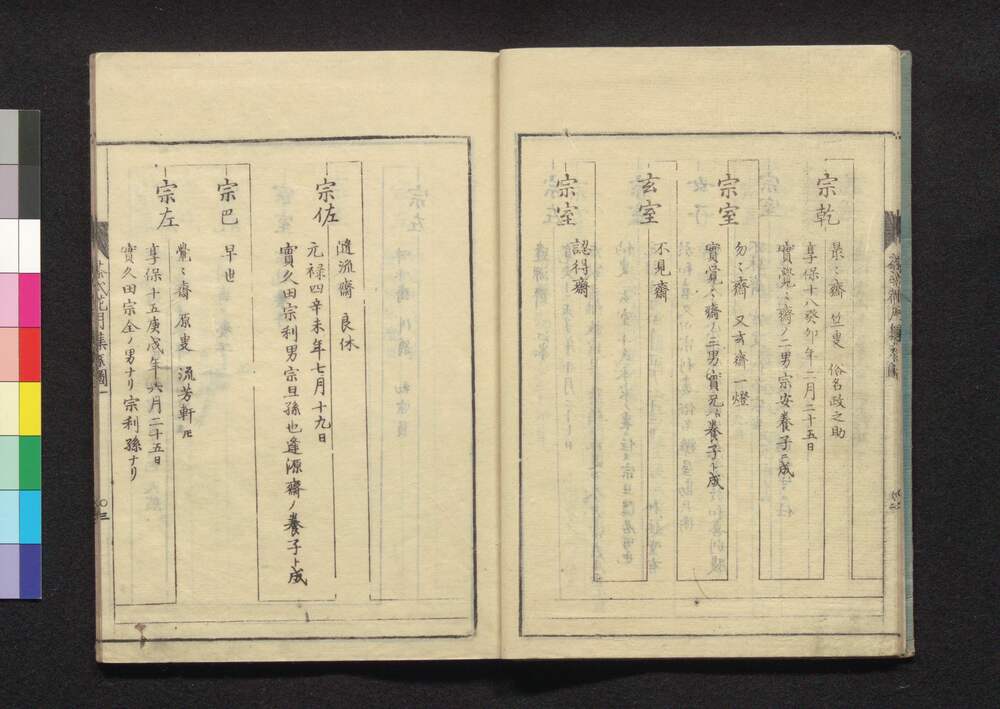 宗乾
最〻齋 竺叟 俗名政之助
享保十八癸卯年二月二十五日
實覺〻齋ノ二男宗安養子ニ成
宗室
勿〻齋 又玄齋一燈
實覺〻齋ノ三男實兄ノ養子ト成
玄室
不見齋
宗室
認得齋
宗佐
隨流齋 良休
元禄四辛未年七月十九日
實久田宗利男宗旦孫也逢源齋ノ養子ト成
宗巴
早世
宗左
覺〻齋 原叟 流芳軒ﾄﾓ
享保十五庚戌年六月二十五日
實久田宗全ノ男ナリ宗利孫ナリ
茶式花月集系圖一